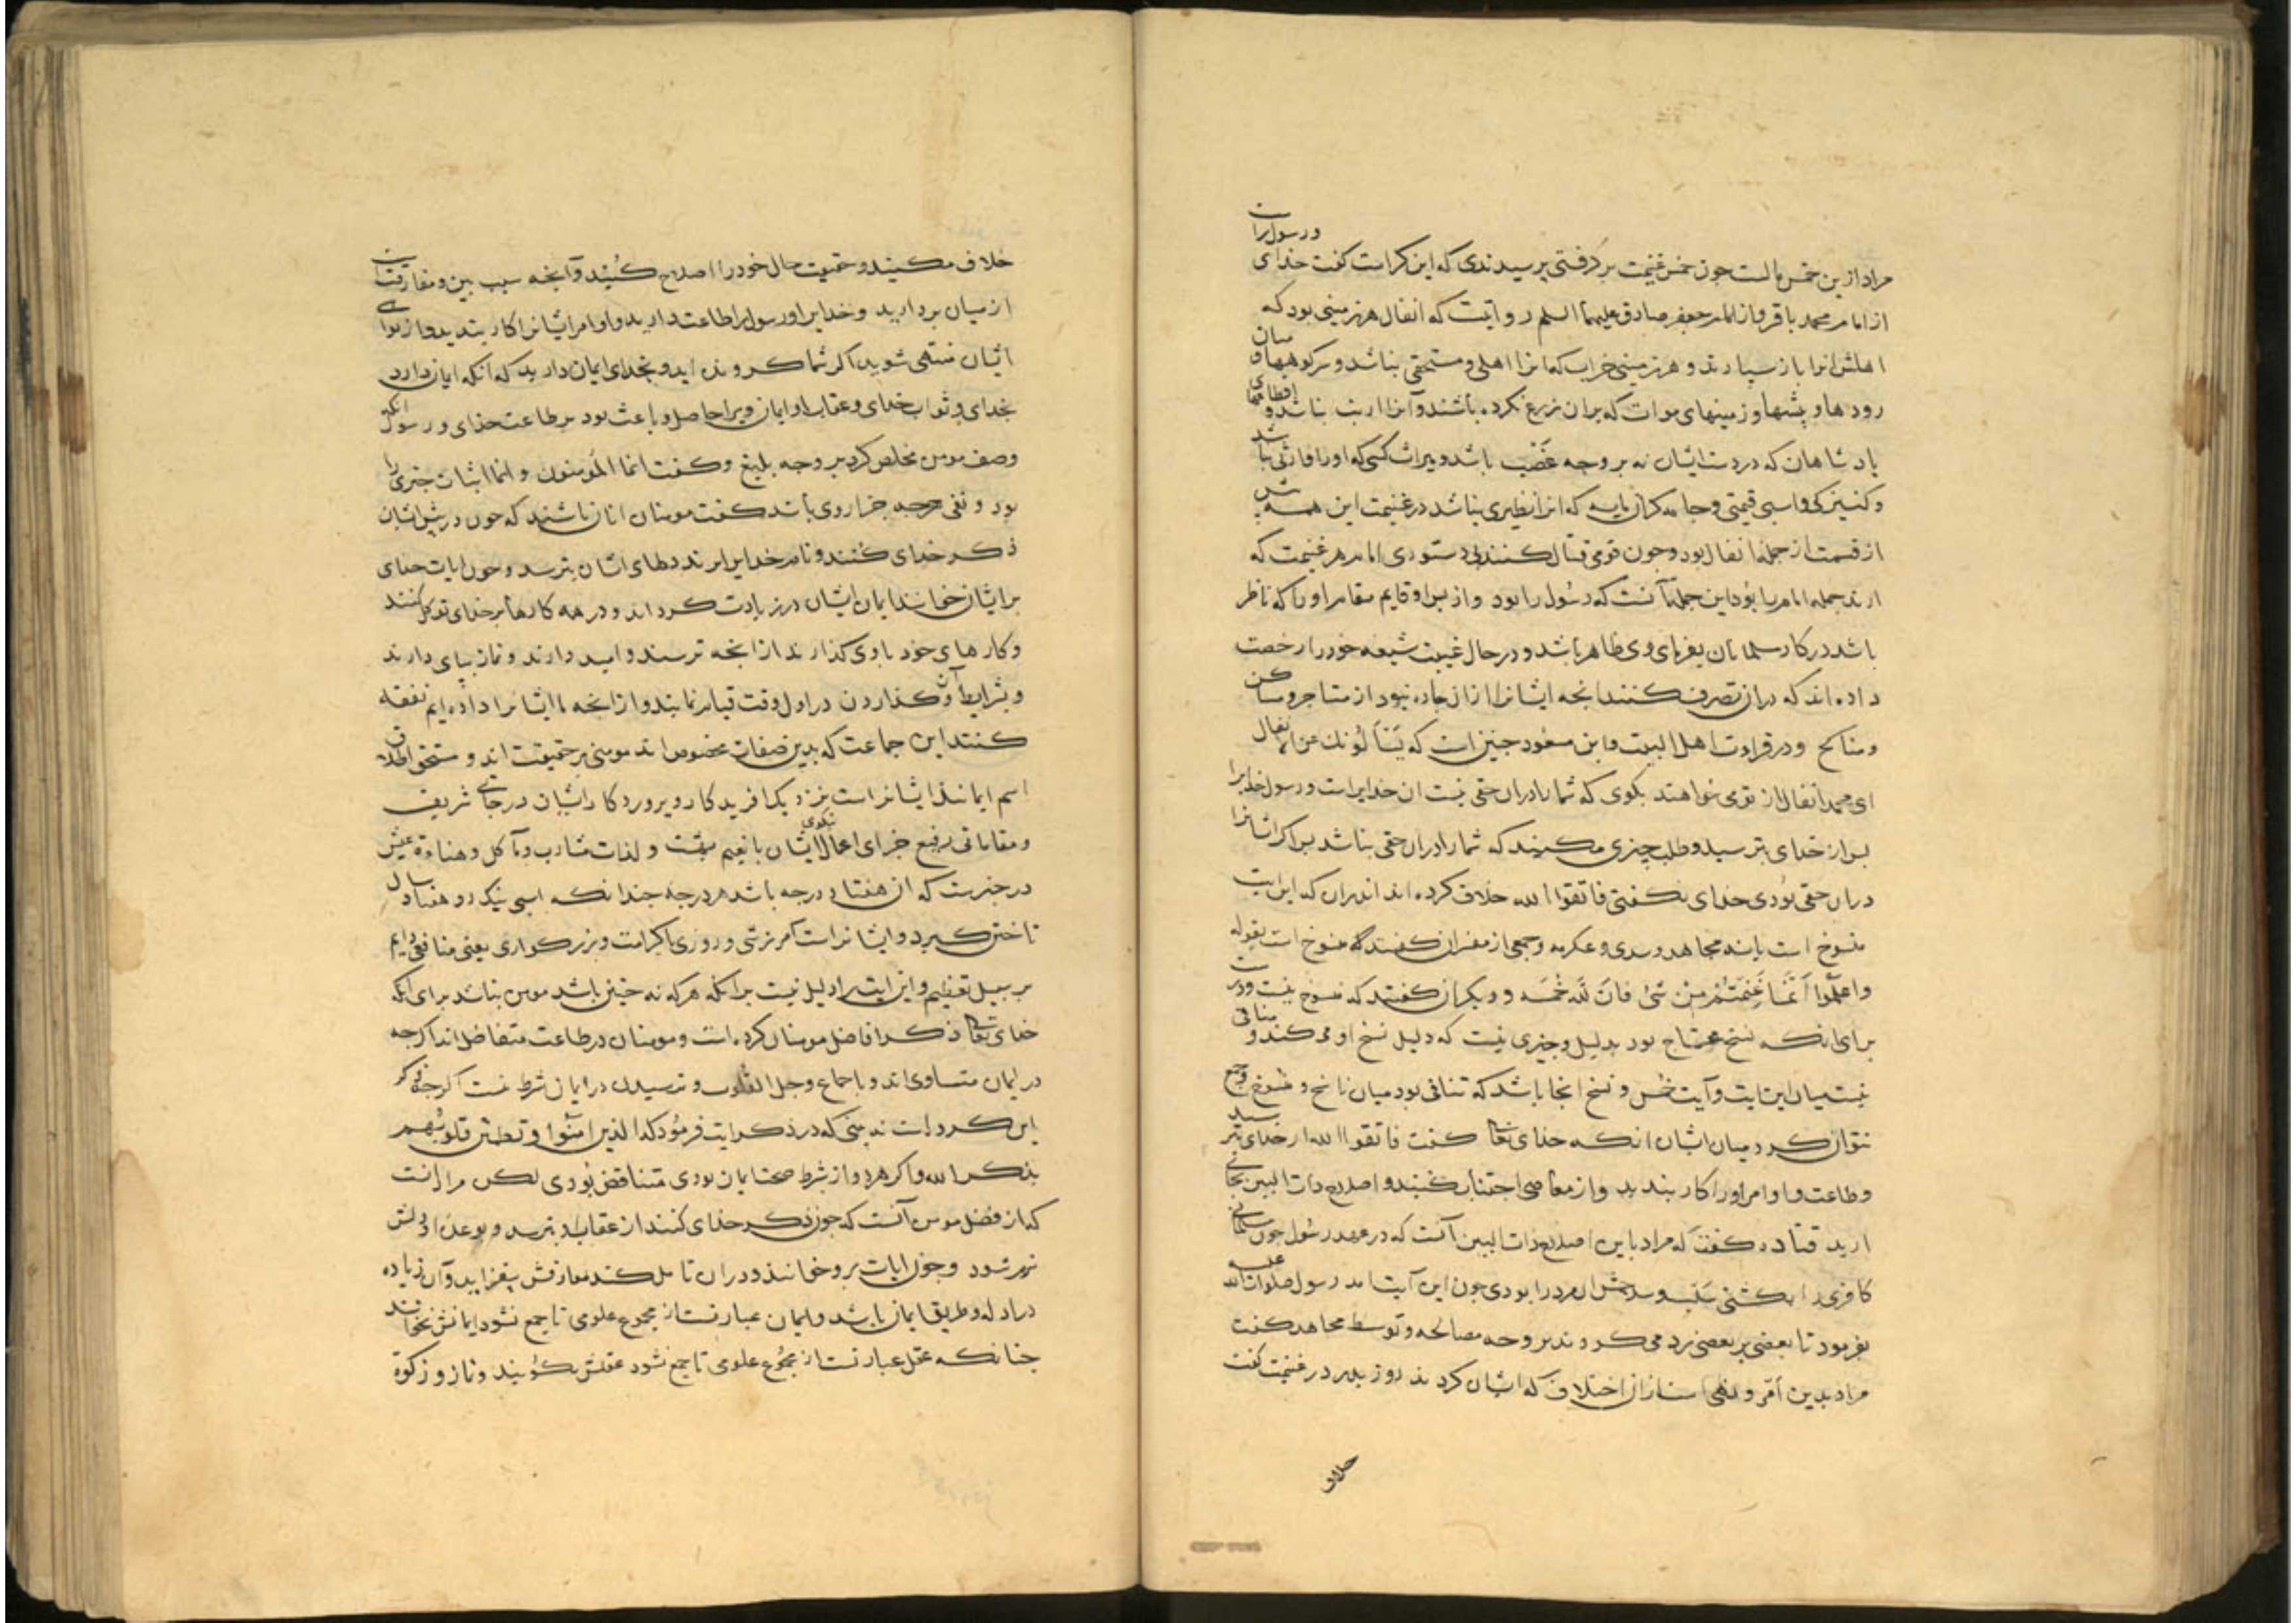 مراد ازین خمس مالست چون خمس غنیمت برگرفتی پرسیدندی که این کراست گفت خدای و رسول راست
از امام محمد باقر و از امام جعفر صادق علیهما السلم روایتست که انفال هر زمینی بود که
اهلش انرا باز سپارند و هر زمینی خراب که انرا اهلی و مستحقی نباشد و سرکوهها و میان
رودها و بیشها و زمینهای موات که بران زرع نکرده باشند و آنرا ارباب نباشد و اقطاعهای
پادشاهان که در دست ایشان نه بر وجه غصب باشد و میراث کسی که او را وارثی نباشد
و کنیزکی و اسبی قیمتی و جامه گران مایه که انرا نظیری نباشد در غنیمت این همه پیش
از قسمت از جمله انفال بود و چون قومی قتال کنند بی دستوری امام هر غنیمت که
ارند جمله امام را بود این جمله آنست که رسول را بود و از پس او قایم مقام او را که ناظر
باشد در کار مسلمانان بفرمای وی ظاهر باشد و در حال غیبت شیعه خود را رخصت
داده اند که دران تصرف کنند انچه ایشانرا از ان چاره نبود از متاجر و مساکن
و مناکح و در قراءت اهل البیت و ابن مسعود چنین است که یسألونك عن الانفال
ای محمد انفال از تو می خواهند بگوی که شما را دران حقی نیست ان خدایراست و رسول خدایرا
پس از خدای بترسید و طلب چیزی مکنید که شما را دران حقی نباشد برا اگر ایشانرا
دران حقی بودی خدای نگفتی فاتقوا الله خلاف کرده اند اندران که این ایت
منسوخ است یا نه مجاهد و سدی و عکرمه و جمعی از مفسران گفتند که منسوخ است بقوله
واعلموا أنما غنمتم من شئ فان لله خمسه و دیگران گفتند که منسوخ نیست و درست
برای انکه نسخ محتاج بود بدلیل و چیزی نیست که دلیل نسخ او می کند و منافی
نیست میان این ایت و آیت خمس و نسخ انجا باشد که تنافی بود میان ناسخ و منسوخ و جمع
نتوان کرد میان ایشان انکه خدای تعا گفت فاتقوا الله از خدای بترسید
و طاعت و اوامر او را کار بندید و از معاصی اجتناب کنید و اصلاح ذات البین بجای
ارید قتاده گفت که مراد باین اصلاح ذات البین آنست که در عهد رسول چون مسلمانی
کافری را بکشتی سلب و سلاحش ان مرد را بودی چون این آیت امد رسول صلوات الله علیه
بفرمود تا بعضی بر بعضی رد می کردند بر وجه مصالحه و توسط مجاهد گفت
مراد بدین امر و نهی است از ان اختلاف که ایشان کردند روز بدر در غنیمت گفت
خلاف
خلاف مکنید و حقیقت حال خود را اصلاح کنید و آنچه سبب بین و مفارقتست
از میان بردارید و خدایرا و رسول را طاعت دارید و اوامر ایشانرا کار بندید و از نواهی
ایشان منتهی شوید اگر شما گرویده اید و بخدای ایمان دارید که انکه ایمان دارد
بخدای و ثواب خدای و عقاب او ایمان ویرا حاصل و باعث بود بر طاعت خدای و رسول انکه
وصف مومن مخلص کرد بر وجه بلیغ و گفت انما المؤمنون و انما اثبات چیزی را
بود و نفی هرچه جز از وی باشد گفت مومنان انان باشند که چون در پیش ایشان
ذکر خدای کنند و نام خدایرا برند دلهای ایشان بترسد و چون ایات خدای
بر ایشان خوانند ایمان ایشان در زیادت گرداند و در همه کارها بر خدای توکل کنند
و کارهای خود باوی گذارند از انچه ترسند و امید دارند و نماز بپای دارند
و بشرایط آن و گذاردن در اول وقت قیام نمایند و از انچه ما ایشانرا داده ایم نفقه
کنند این جماعت که بدین صفات مخصوص اند مومنی بر حقیقت اند و مستحق اطلاق
اسم ایمانند ایشانراست بنزدیک افریدگار و پروردگار ایشان درجاتی شریف
و مقاماتی رفیع جزای اعمال نیکوی ایشان با نعیم بهشت و لذات مشارب و مآکل و هناءة عیش
در خبرست که ان هفتاد درجه باشد هر درجه چندانکه اسبی نیک رو هفتاد سال
تاختن گیرد و ایشانراست آمرزش و روزی باکرامت و بزرگواری یعنی منافعی دایم
بر سبیل تعظیم و این ایت را دلیل نیست برانکه هرکه نه چنین باشد مومن نباشد برای انکه
خدای تعا ذکر افاضل مومنان کرده است و مومنان در طاعت متفاضل اند اگرچه
در ایمان متساوی اند و باجماع وجل القلوب و ترسیدن در ایمان شرط نیست اگرچه ذکر
این کرده است نه بینی که در ذکر ایت فرمود که الذین امنوا و تطمئن قلوبهم
بذکر الله و اگر هر دو از شرط صحت ایمان بودی متناقض بودی لکن مراد انست
که از فضل مومن آنست که چون ذکر خدای کنند از عقاب او بترسد و بوعده او دلش
نرم شود و چون ایات برو خوانند و دران تامل کند معارفش بیفزاید و آن زیاده
در ادله و طریق ایمان باشد و ایمان عبارتست از مجموع علومی تا جمع نشود ایمانش نخوانند
چنانکه عقل عبارتست از مجموع علومی تا جمع نشود عقلش نگویند و نماز و زکوة